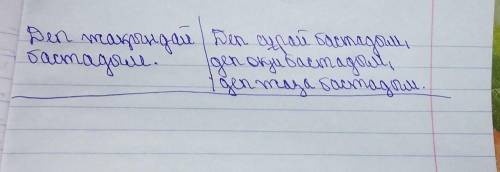 Деп жақындай
бастадым.
Деп сұрай бастадым,
деп оқи бастадым,
деп жаза бастадым.